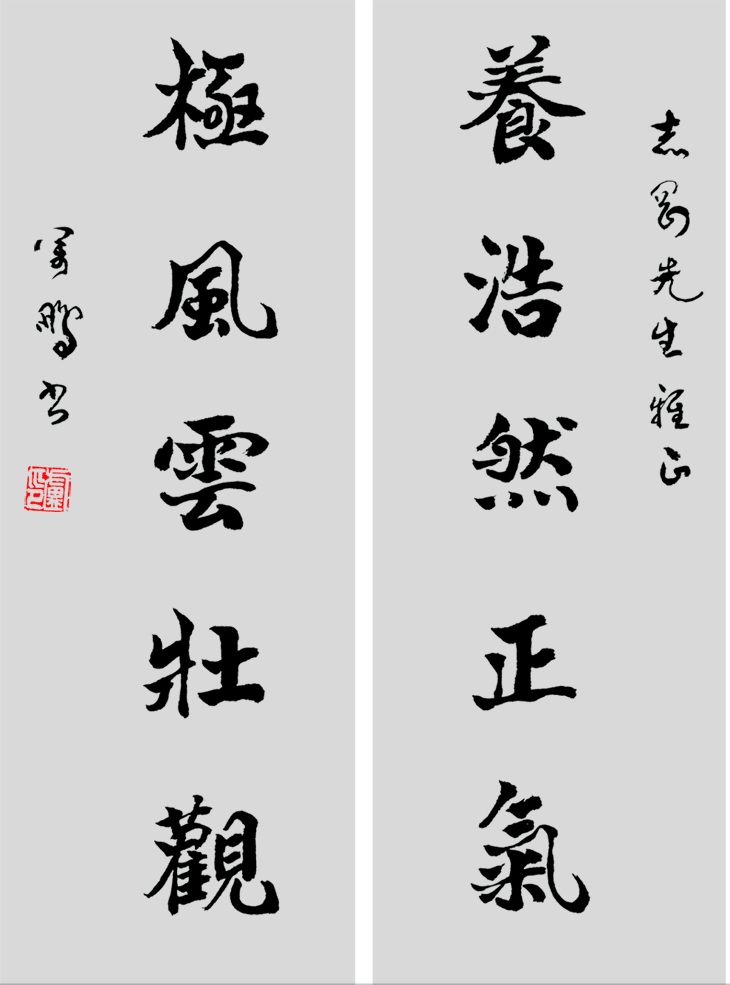 志剛先生雅正
養浩然正氣
極風雲壯觀
鵬書